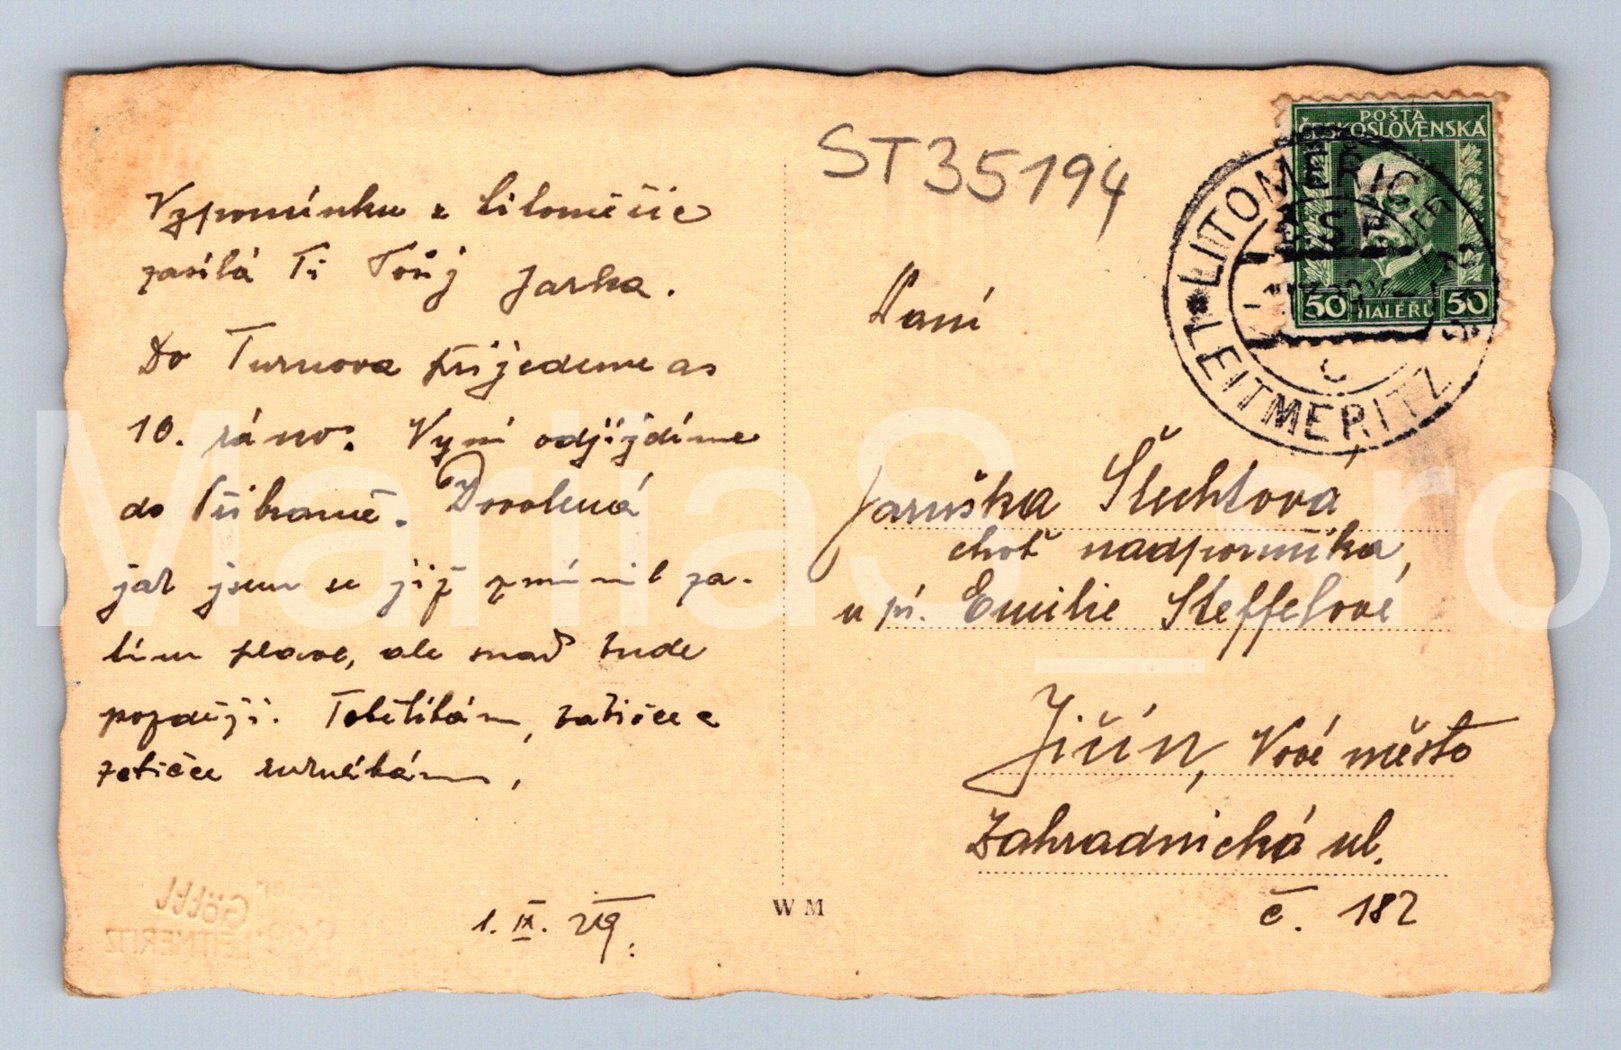 ST35194
POŠTA
ČESKOSLOVENSKÁ
50 HALÉŘŮ 50
LITOMĚŘICE
LEITMERITZ
Vzpomínku z Litoměřic
zasílá Ti Tvůj Jarka.
Do Turnova přijedeme as
10. ráno. Nyní odjíždíme
do Příkaně. Dovolená
jak jsem se již zmínil za-
tím plave, ale snad bude
později. Tobě líbám, babičce a
tetičce ručník líbám,
1. IX. 29.
Paní
Jaruška Šlechtová
choť nadporučíka,
u pí. Emilie Steffelové
Jičín, Nové město
Zahradnická ul.
č. 182
W M
GÖFFL
LEITMERITZ
MariaS_sro